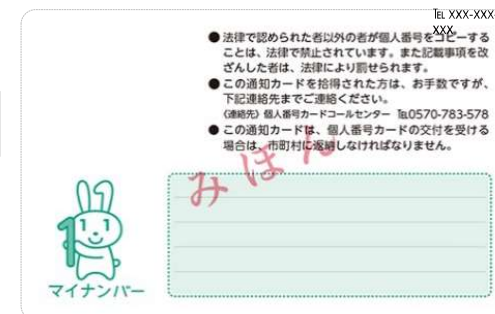 TEL XXX-XXX
XXX
● 法律で認められた者以外の者が個人番号をコピーする
ことは、法律で禁止されています。また記載事項を改
ざんした者は、法律により罰せられます。
● この通知カードを拾得された方は、お手数ですが、
下記連絡先までご連絡ください。
《連絡先》個人番号カードコールセンター ℡0570-783-578
● この通知カードは、個人番号カードの交付を受ける
場合は、市町村に返納しなければなりません。
みほん
1
マイナンバー